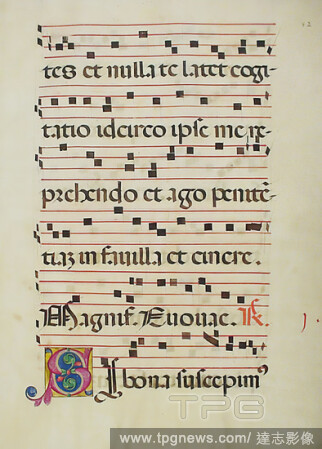 tes et nulla te latet cogi-
tatio idcirco ipse me re-
prehendo et ago penitē-
tiaz in favilla et cinere.
Magnif. Euouae. ℟.
Si bona suscepim⁹
TPG
www.tpgnews.com / 達志影像